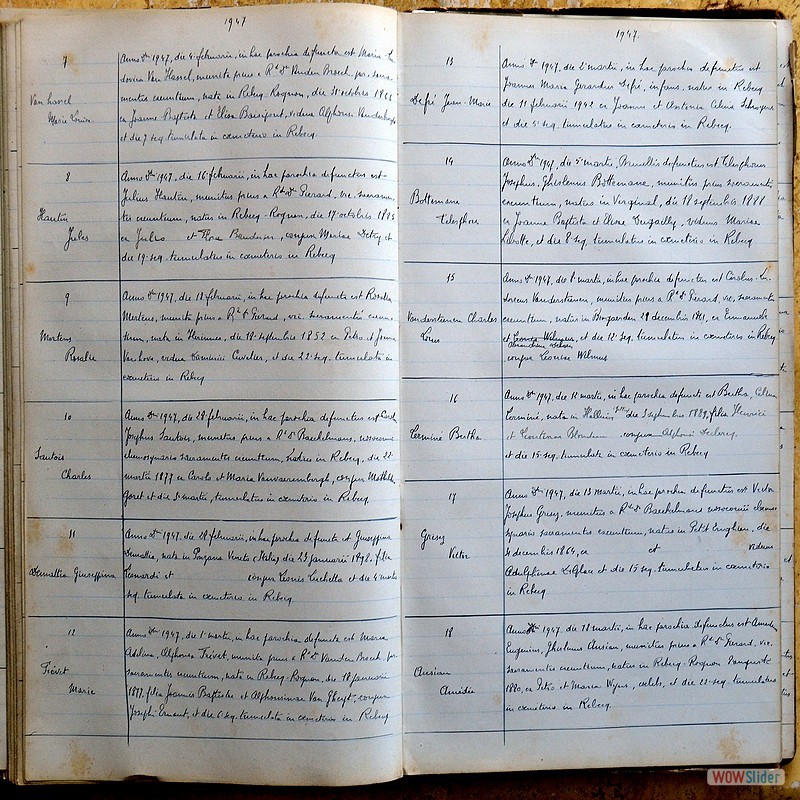 1947
7
Van hassel
Marie Louise
Anno Dni 1947, die 4 februarii, in hac parochia defuncta est Maria Lu-
dovica Van Hassel, munita prius a Rdo Do Vanden Broeck, par. sacra-
mentis exeuntium, nata in Rebecq-Rognon, die 31 octobris
ex Joanne Baptista et Elisa vidua Alphonsi Vandenbergh
et die 7 seq. tumulata in cœmeterio in Rebecq.
8
Hautin
Jules
Anno Dni 1947, die 16 februarii, in hac parochia defunctus est
Julius Hautin, munitus prius a Rdo Do Pierard, vic. sacramen-
tis exeuntium, natus in Rebecq-Rognon, die 17 octobris 1885
ex Julio et Flora conjux Mariae
die 19 seq. tumulatus in cœmeterio in Rebecq
9
Mertens
Rosalie
Anno Dni 1947, die 18 februarii, in hac parochia defuncta est Rosalia
Mertens, munita prius a Rdo Do Pierard, vic. sacramentis exeun-
tium, nata in Herinnes, die 18 septembris 1852 ex Petro et Joanna
Van vidua Dominici Cuvelier, et die 22 seq. tumulata in
cœmeterio in Rebecq
10
Sautois
Charles
Anno Dni 1947, die 28 februarii, in hac parochia defunctus est Carolus
Josephus Sautois, munitus prius a Rdo Do Bachelmans, nosocomii
elemosynario sacramentis exeuntium, natus in Rebecq, die 22
martii 1877 ex Carolo et Maria conjux Mathildis
Goret et die 3 martii, tumulatus in cœmeterio in Rebecq.
11
Demattia Giuseppina
Anno Dni 1947, die 28 februarii, in hac parochia defuncta est Giuseppina
Demattia, nata in Veneta (Italia) die 23 januarii 1892, filia
Leonardi et conjux Cechella et die 4 martii
seq. tumulata in cœmeterio in Rebecq
12
Trévet
Marie
Anno Dni 1947, die 1 martii, in hac parochia defuncta est Maria
Adelina, Alphonsa Trévet, munita prius a Rdo Do Vanden Broeck, par.
sacramentis exeuntium, nata in Rebecq-Rognon, die 18 januarii
1897, filia Joannis Baptistae et Alphonsinae Van conjux
Josephi Ernaut, et die 6 seq. tumulata in cœmeterio in Rebecq
1947.
13
Defré Jean-Marie
Anno Dni 1947, die 2 martii, in hac parochia defunctus est
Joannes Maria Gerardus Defré, infans, natus in Rebecq
die 11 februarii 1942 ex Joanne et Antonia
et die 5 seq. tumulatus in cœmeterio in Rebecq.
14
Bottemane
Télesphore
Anno Dni 1947, die 5 martii, Bruxellis defunctus est Telesphorus
Josephus, Ghislenus Bottemane, munitus prius sacramentis
exeuntium, natus in Virginal, die 18 septembris 1888
ex Joanne Baptista et viduus Mariae
et die 8 seq. tumulatus in cœmeterio in Rebecq
15
Vanderstienen Charles
Louis
Anno Dni 1947, die 8 martii, in hac parochia defunctus est Carolus Lu-
dovicus Vanderstienen, munitus prius a Rdo Do Pierard, vic. sacramentis
exeuntium, natus in Hoegaerden 29 decembris 1861, ex Emmanuele
et et die 12 seq. tumulatus in cœmeterio in Rebecq
conjux Louisae Wilmus
16
Lerminé Bertha
Anno Dni 1947, die 12 martii, in hac parochia defuncta est Bertha, Celina
Lerminé, nata in die 3 septembris 1889, filia Henrici
et Blondeau, conjux Alphonsi Declercq,
et die 15 seq. tumulata in cœmeterio in Rebecq
17
Greuz
Victor
Anno Dni 1947, die 13 martii, in hac parochia defunctus est Victor
Josephus Greuz, munitus a Rdo Do Bachelmans nosocomii elemo-
synario sacramentis exeuntium, natus in Petit Enghien, die
4 decembris 1864, ex et viduus
Adulphinae et die 15 seq. tumulatus in cœmeterio
in Rebecq
18
Ansiau
Amédée
Anno Dni 1947, die 18 martii, in hac parochia defunctus est Amedeus
Eugenius, Ghislenus Ansiau, munitus prius a Rdo Do Pierard, vic.
sacramentis exeuntium, natus in Rebecq-Rognon
1880, ex Petro et Maria Wyns, celebs, et die 22 seq. tumulatus
in cœmeterio in Rebecq.
WOWSlider